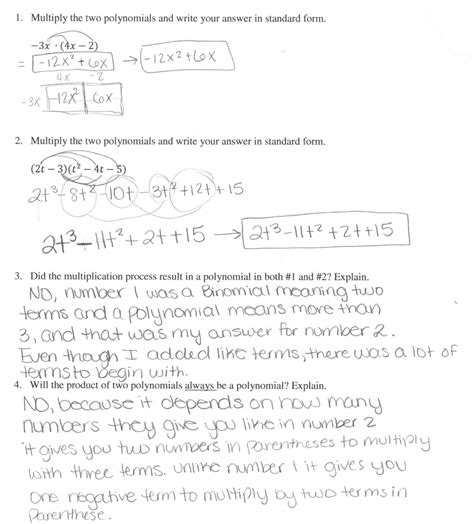 1. Multiply the two polynomials and write your answer in standard form.
-3x · (4x – 2)
= -12x² + 6x → -12x² + 6x
4x -2
-3x -12x² 6x
2. Multiply the two polynomials and write your answer in standard form.
(2t – 3)(t² – 4t – 5)
2t³ - 8t² - 10t - 3t² + 12t + 15
2t³ - 11t² + 2t + 15 → 2t³ - 11t² + 2t + 15
3. Did the multiplication process result in a polynomial in both #1 and #2? Explain.
No, number 1 was a Binomial meaning two
terms and a polynomial means more than
3, and that was my answer for number 2.
Even though I added like terms, there was a lot of
terms to begin with.
4. Will the product of two polynomials always be a polynomial? Explain.
NO, because it depends on how many
numbers they give you like in number 2
it gives you two numbers in parentheses to multiply
with three terms. unlike number 1 it gives you
one negative term to multiply by two terms in
parenthese.